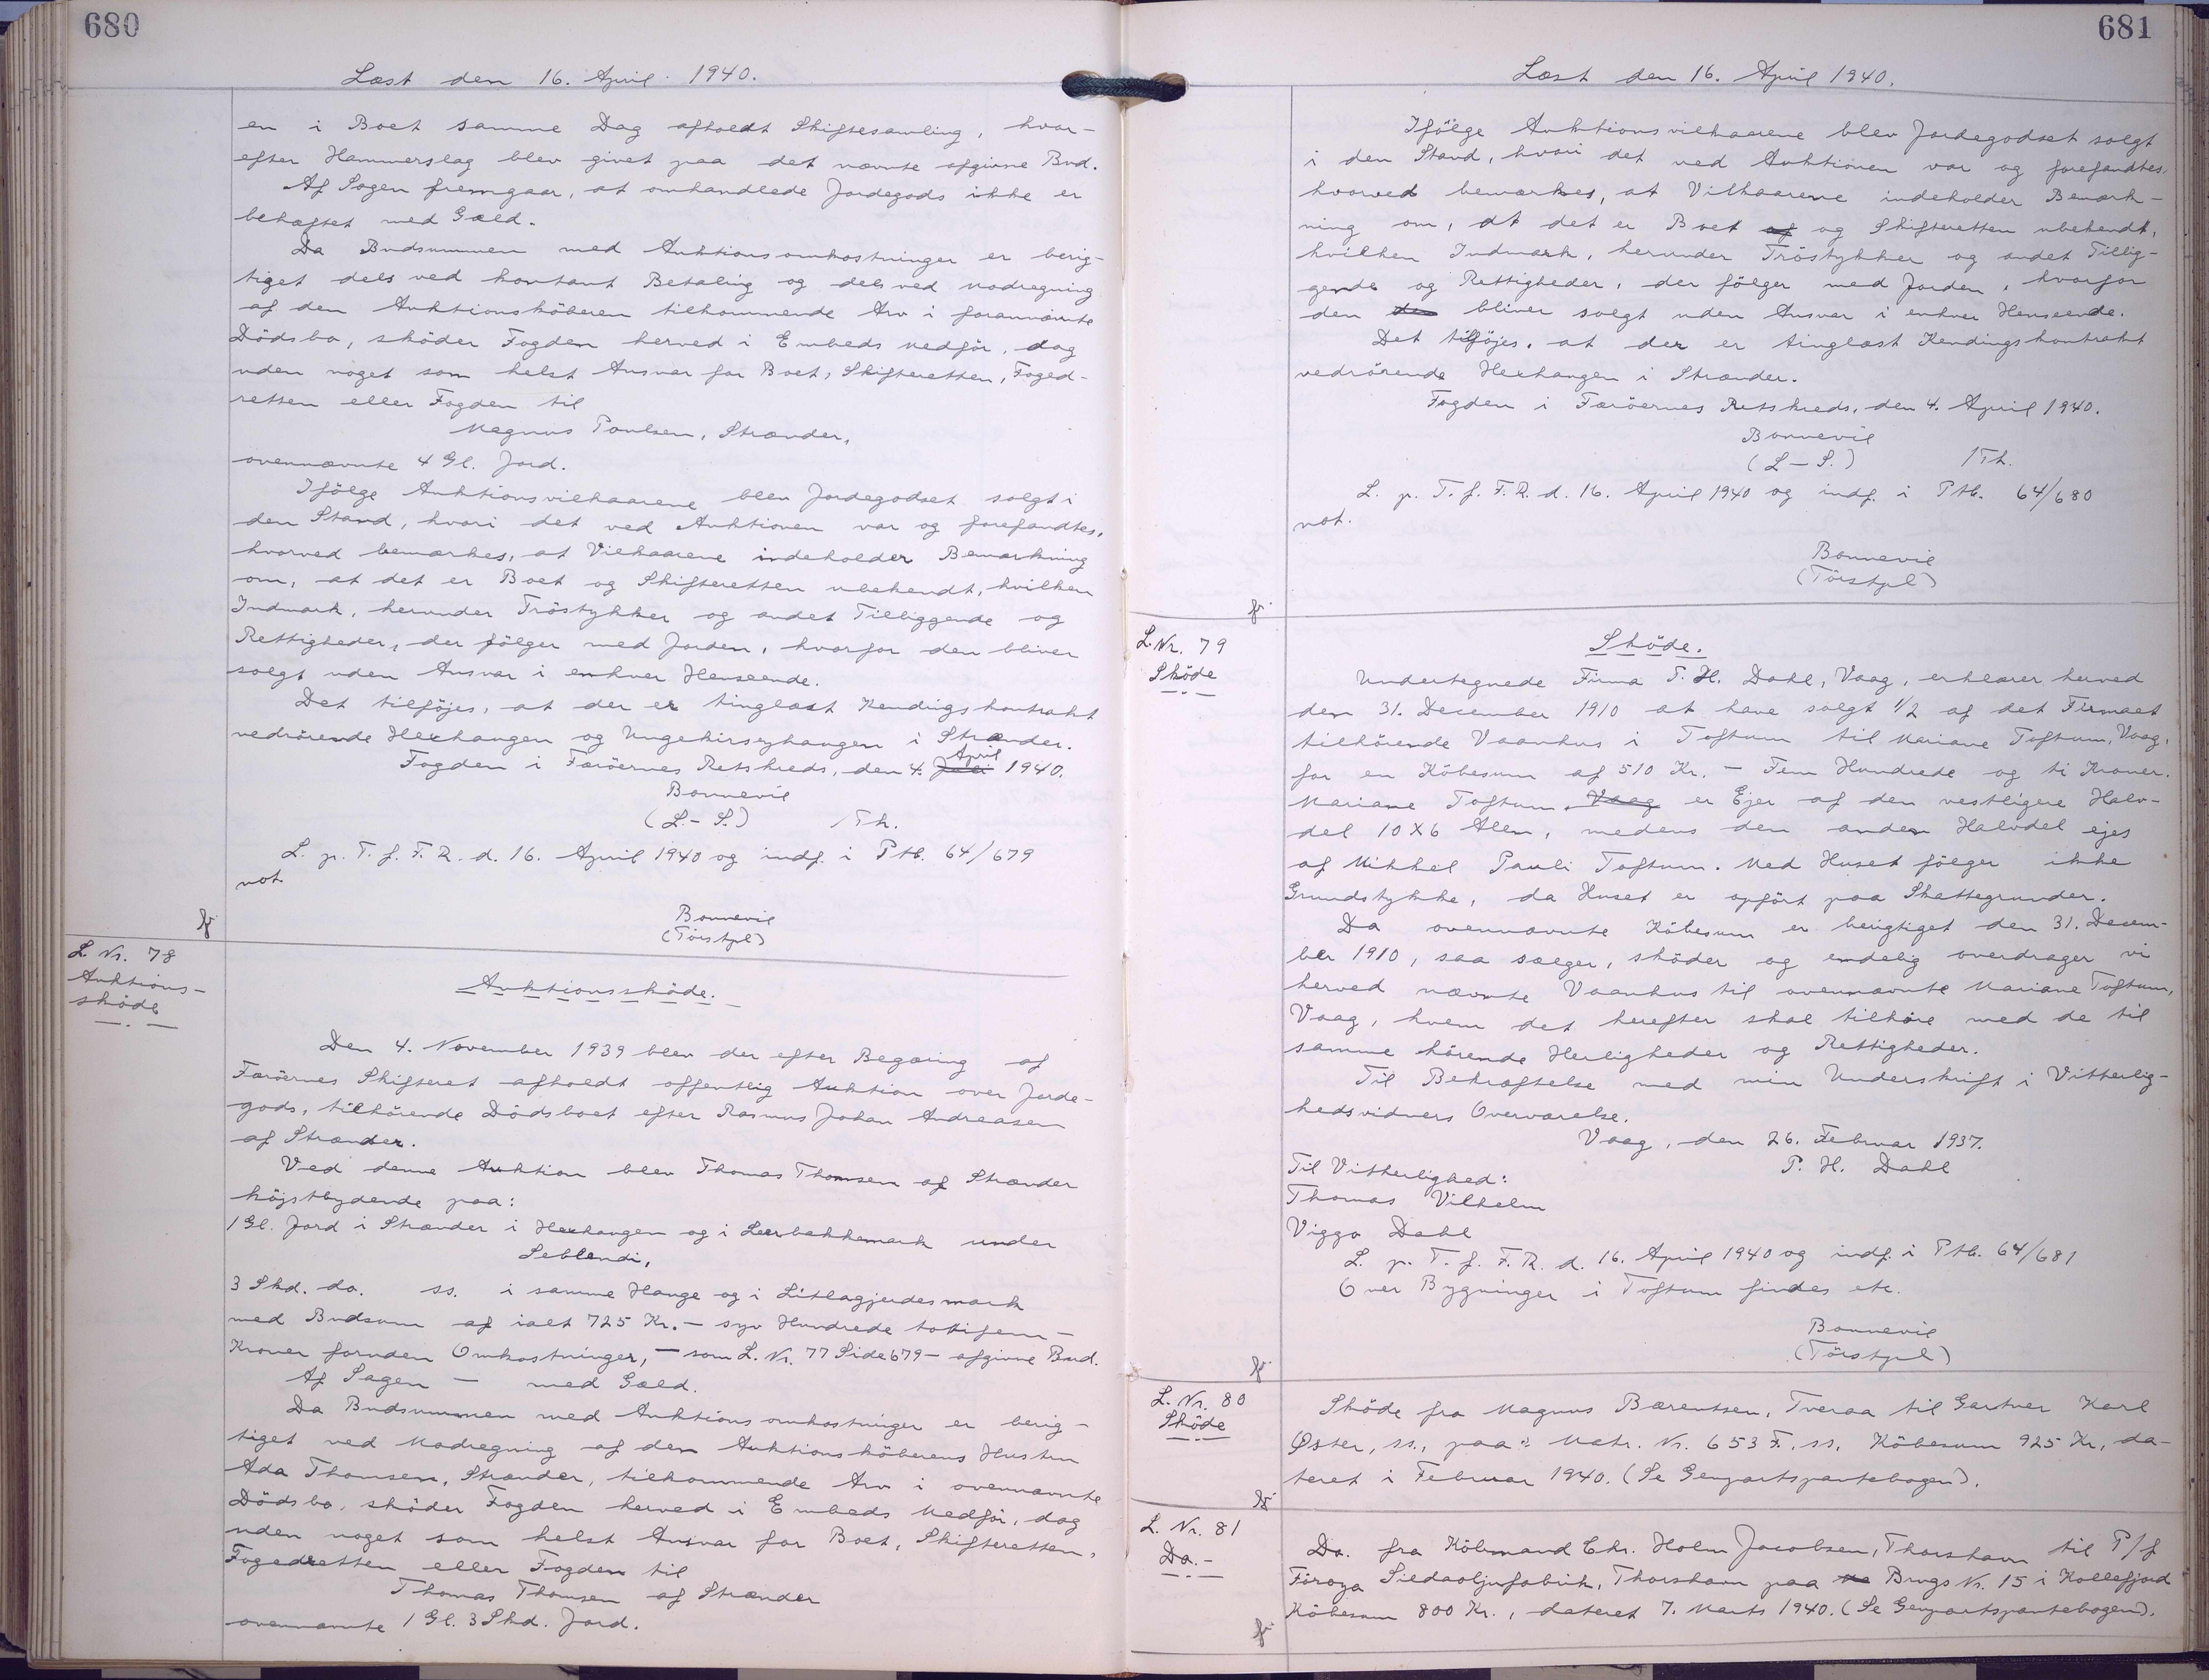 680
Læst den 16. April 1940.
en i Boet samme Dag afholdt Skiftesamling, hvor-
efter Hammerslag blev givet paa det nævnte afgivne Bud.
Af Sagen fremgaar, at omhandlede Jordegods ikke er
behæftet med Gæld.
Da Budsummen med Auktionsomkostninger er berig-
tiget dels ved kontant Betaling og dels ved Modregning
af den Auktionsköberen tilkommende Arv i forannævnte
Dödsbo, sköder Fogden herved i Embeds Medför, dog
uden noget som helst Ansvar for Boet, Skifteretten, Foged-
retten eller Fogden til
Magnus Poulsen, Strænder,
ovennævnte 4 Gl. Jord.
Ifölge Auktionsvilkaarene blev Jordegodset solgt i
den Stand, hvori det ved Auktionen var og forefandtes,
hvorved bemærkes, at Vilkaarene indeholder Bemærkning
om, at det er Boet og Skifteretten ubekendt, hvilken
Indmark, herunder Tröstykker og andet Tilliggende og
Rettigheder, der fölger med Jorden, hvorfor den bliver
solgt uden Ansvar i enhver Henseende.
Det tilföjes, at der er tinglæst Kendingskontrakt
vedrörende Hexhangen og Ungekirsyhaugen i Strænder.
Fogden i Færöernes Retskreds, den 4. April 1940.
Bonnevie
(L.-S.) /Th.
L. p. T. f. F. R. d. 16. April 1940 og indf. i Ptb. 64/679
not.
Bonnevie
(Törstpl)
L. Nr. 78
Auktions-
sköde
Auktionssköde.
Den 4. November 1939 blev der efter Begæring af
Færöernes Skifteret afholdt offentlig Auktion over Jorde-
gods, tilhörende Dödsboet efter Rasmus Johan Andreasen
af Strænder.
Ved denne Auktion blev Thomas Thomsen af Strænder
höjstbydende paa:
1 Gl. Jord i Strænder i Hexhangen og i Leerbakkemark under
Seblendi,
3 Skd. do. ss. i samme Hauge og i Litlagjerdesmark
med Budsum af ialt 725 Kr. - syv Hundrede totifem -
Kroner foruden Omkostninger, - som L. Nr. 77 Side 679 - afgivne Bud.
Af Sagen - med Gæld.
Da Budsummen med Auktionsomkostninger er berig-
tiget ved Modregning af den Auktionsköberens Hustru
Ada Thomsen, Strænder, tilkommende Arv i ovennævnte
Dödsbo, sköder Fogden herved i Embeds Medför, dog
uden noget som helst Ansvar for Boet, Skifteretten,
Fogedretten eller Fogden til
Thomas Thomsen af Strænder
ovennævnte 1 Gl. 3 Skd. Jord.
681
Læst den 16. April 1940.
Ifölge Auktionsvilkaarene blev Jordegodset solgt
i den Stand, hvori det ved Auktionen var og forefandtes,
hvorved bemærkes, at Vilkaarene indeholder Bemærk-
ning om, at det er Boet af og Skifteretten ubekendt,
hvilken Indmark, herunder Tröstykker og andet Tillig-
gende og Rettigheder, der fölger med Jorden, hvorfor
den den bliver solgt uden Ansvar i enhver Henseende.
Det tilföjes, at der er tinglæst Kendingskontrakt
vedrörende Hexhangen i Strænder.
Fogden i Færöernes Retskreds, den 4. April 1940.
Bonnevie
(L-S.) /Th.
L. p. T. f. F. R. d. 16. April 1940 og indf. i Ptb. 64/680
not.
Bonnevie
(Törstpl)
L. Nr. 79
Sköde
Sköde.
Undertegnede Firma P. H. Dahl, Vaag, erklærer herved
den 31. December 1910 at have solgt 1/2 af det Firmaet
tilhörende Vaanhus i Toftum til Mariane Toftum, Vaag,
for en Köbesum af 510 Kr. - Fem Hundrede og ti Kroner.
Mariane Toftum, Vaag er Ejer af den vestligere Halv-
del 10x6 Alen, medens den anden Halvdel ejes
af Mikkel Pauli Toftum. Med Huset fölger ikke
Grundstykke, da Huset er opfört paa Skattegrunder.
Da ovennævnte Köbesum er berigtiget den 31. Decem-
ber 1910, saa sælger, sköder og endelig overdrager vi
herved nævnte Vaanhus til ovennævnte Mariane Toftum,
Vaag, hvem det herefter skal tilhöre med de til
samme hörende Herligheder og Rettigheder.
Til Bekræftelse med min Underskrift i Vitterlig-
hedsvidners Overværelse.
Vaag, den 26. Februar 1937.
P. H. Dahl
Til Vitterlighed:
Thomas Vilhelm
Viggo Dahl
L. p. T. f. F. R. d. 16. April 1940 og indf. i Ptb. 64/681
Over Bygninger i Toftum findes etc.
Bonnevie
(Törstpl)
L. Nr. 80
Sköde
Sköde fra Magnus Bærentsen, Tveraa til Gartner Karl
Øster, ss., paa: Matr. Nr. 653 F., ss. Köbesum 925 Kr., da-
teret i Februar 1940. (Se Genpartspantebogen).
L. Nr. 81
Do.-
Do. fra Köbmand Chr. Holm Jacobsen, Thorshavn til P/f
Föroya Sildaoljufabrik, Thorshavn paa Brugs Nr. 15 i Kollefjord
Köbesum 800 Kr., dateret 7. Marts 1940. (Se Genpartspantebogen).